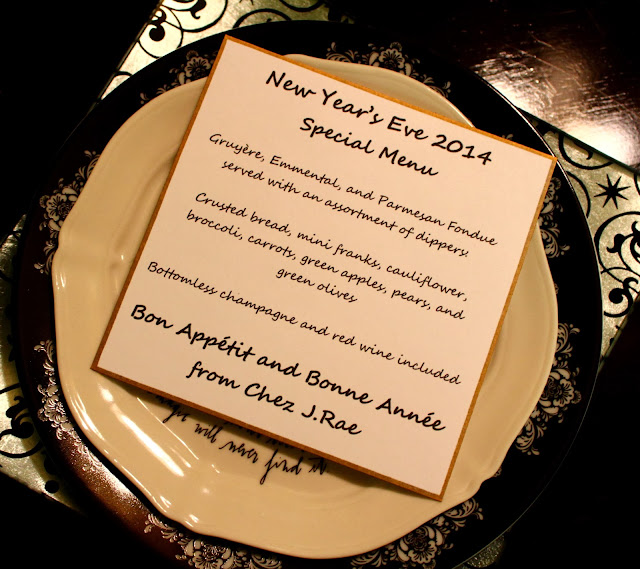 New Year's Eve 2014
Special Menu
Gruyère, Emmental, and Parmesan Fondue
served with an assortment of dippers:
Crusted bread, mini franks, cauliflower,
broccoli, carrots, green apples, pears, and
green olives
Bottomless champagne and red wine included
Bon Appétit and Bonne Année
from Chez J.Rae
will never find it